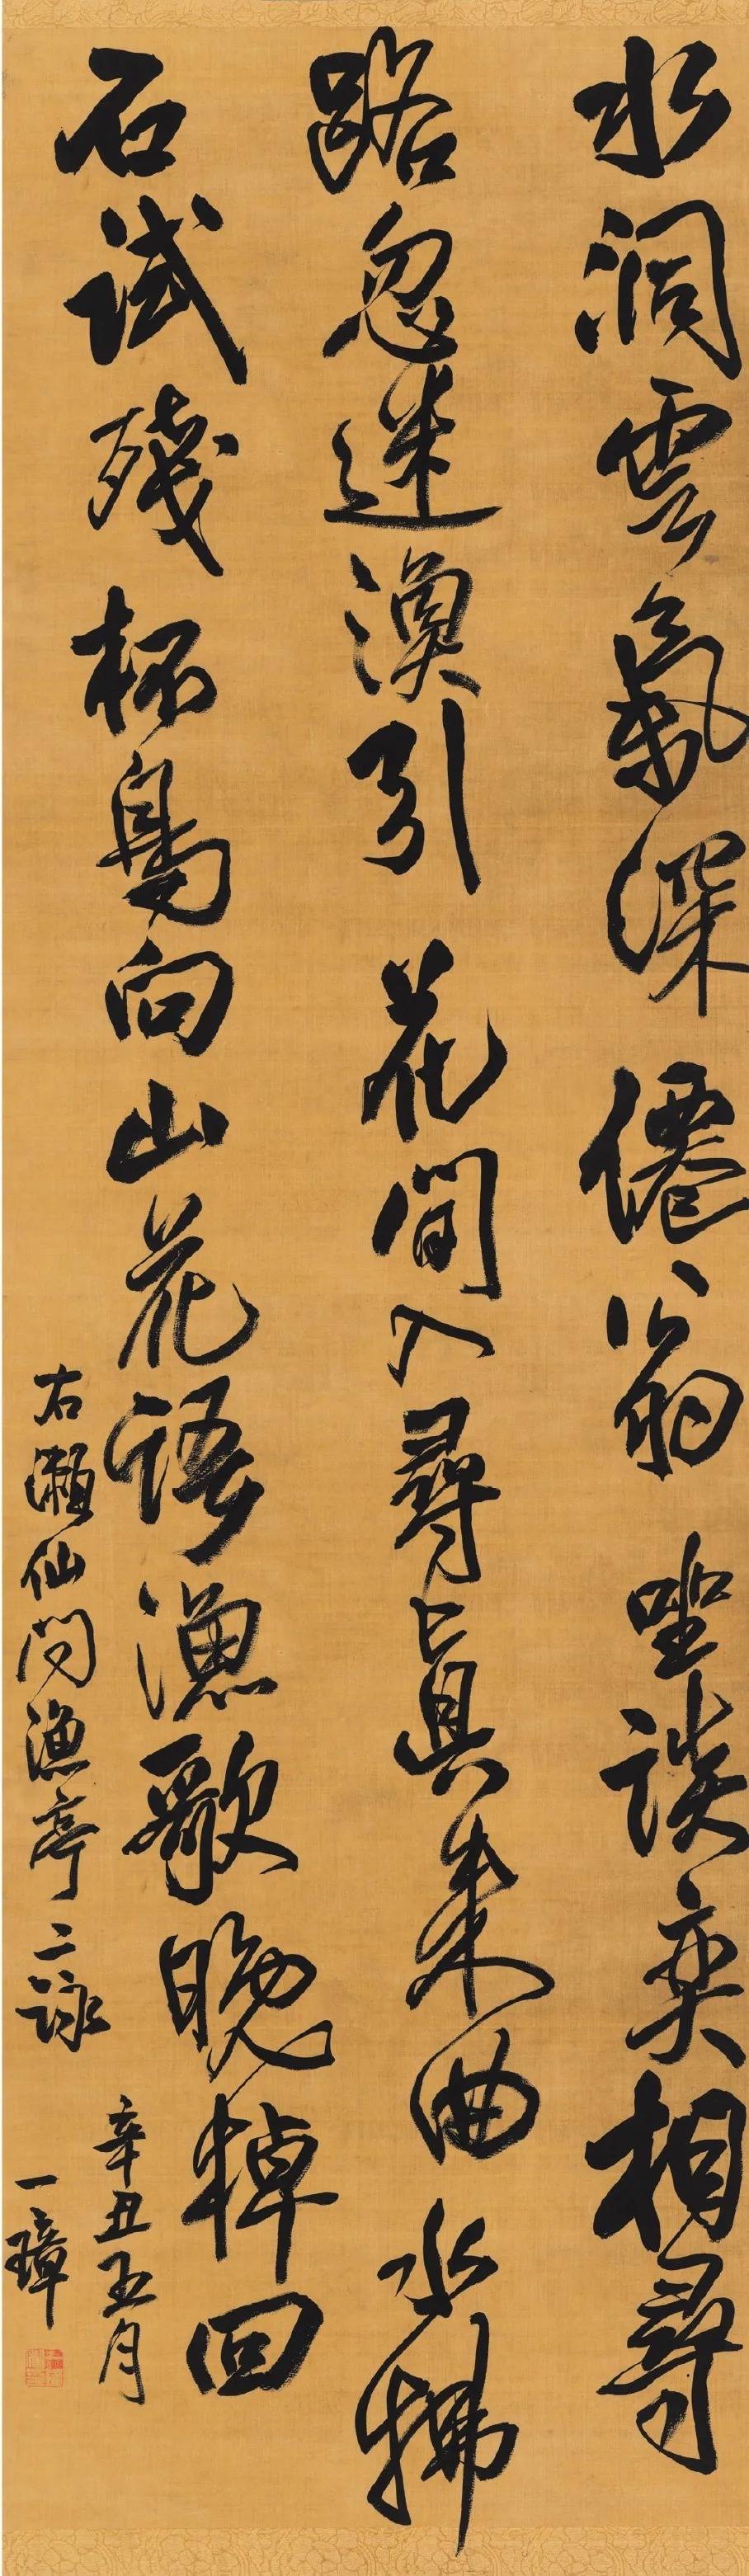 水洞雲氣深僊翁坐談奕相尋
路忽迷漁引花間入尋真來曲水拂
石試殘杯鳥向山花語漁歌晚棹回
右瀨仙問漁亭二詠
辛丑五月
一璋